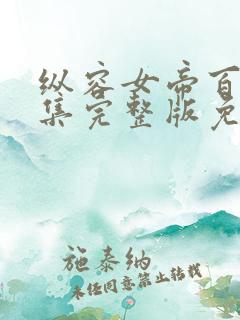 纵容女帝百
集完整版免
施泰纳
未经同意禁止转载